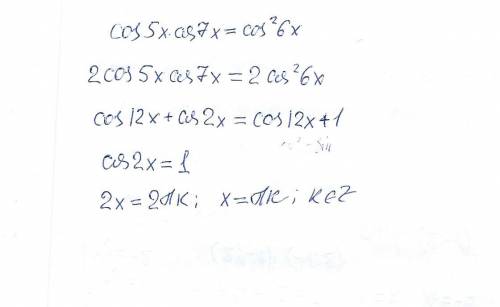 cos5x·cos7x=cos²6x
2cos5xcos7x=2cos²6x
cos12x+cos2x=cos12x+1
cos2x=1
2x=2πк; x=πк; к∈Z